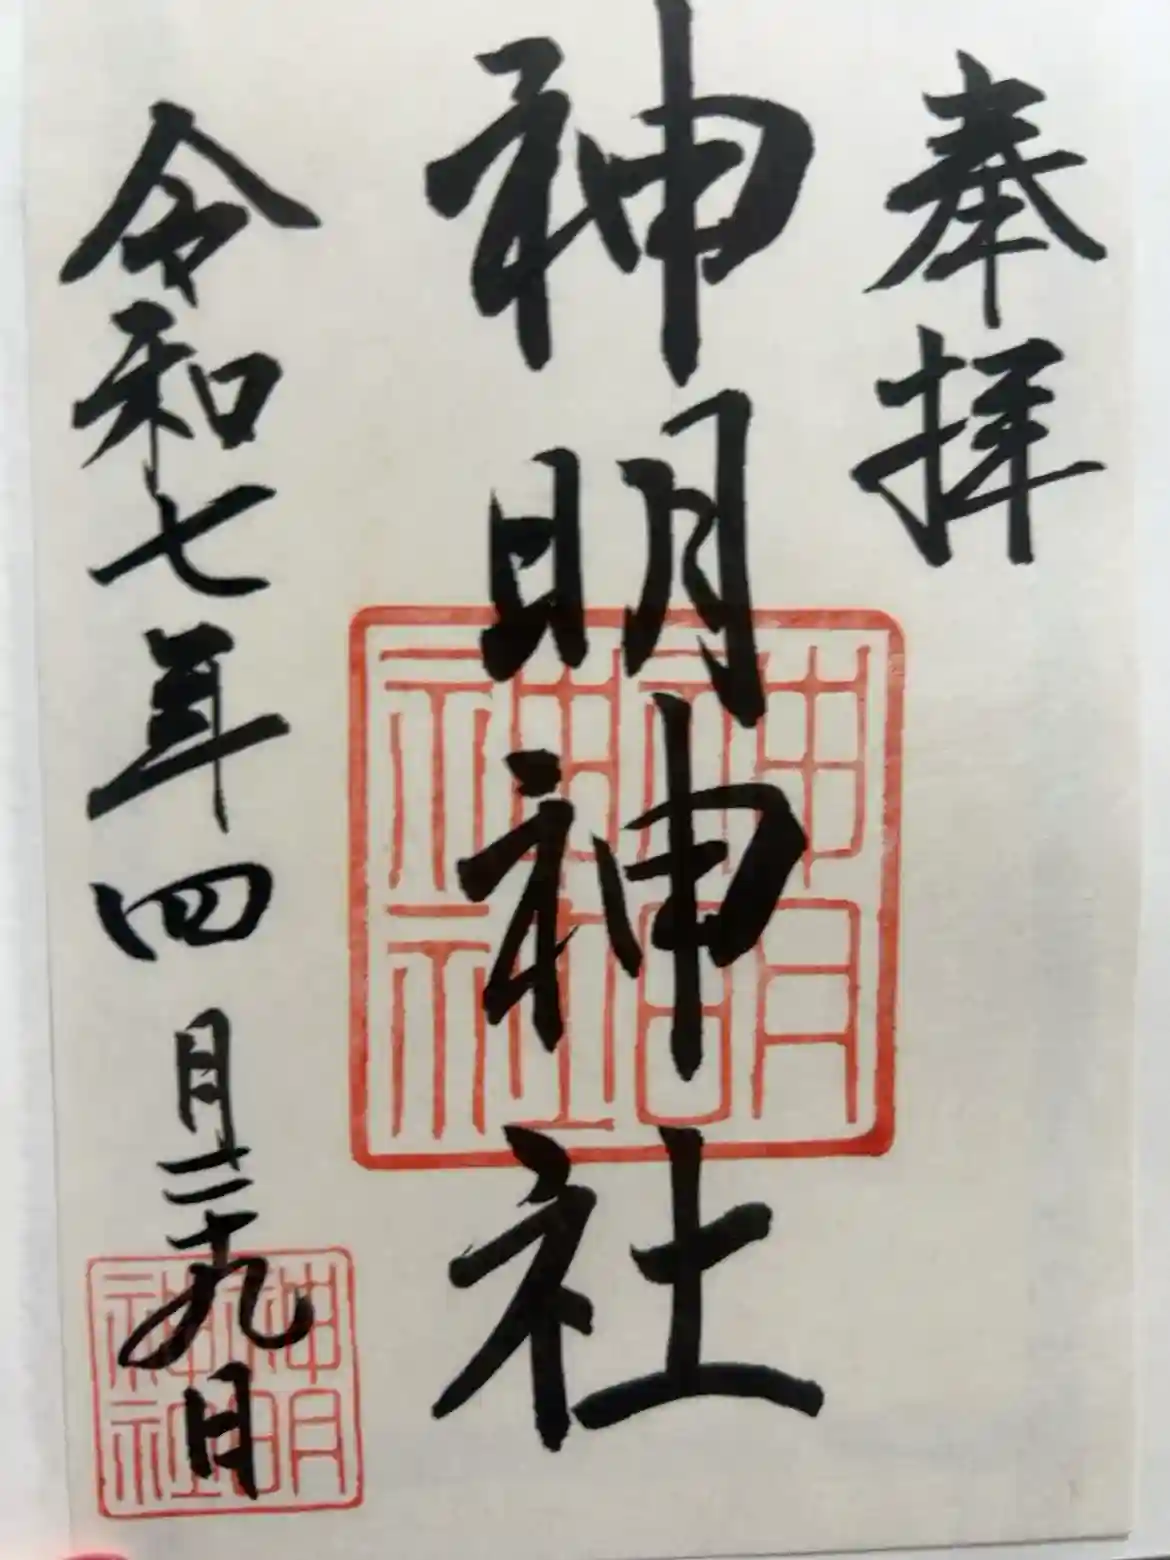 奉拝
神明神社
神明神社
令和七年四月二十九日
神明神社